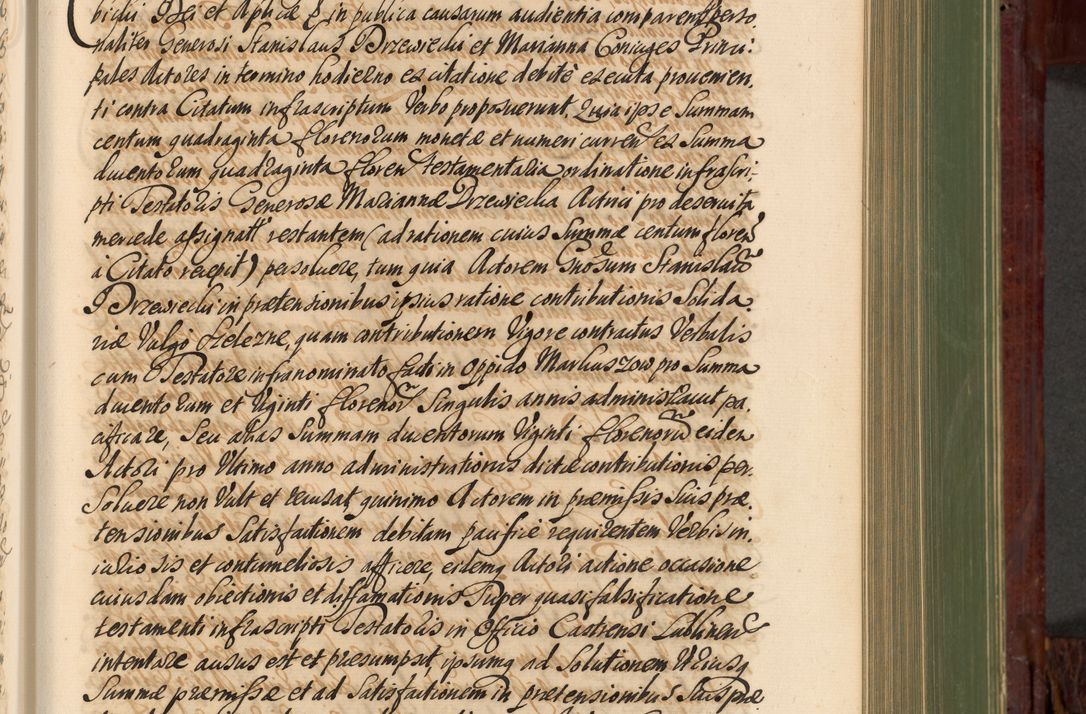 biciti Dei et Aplicæ in publica causarum audientia comparent perso
naliter Generosi Stanislaus Brzewiecki et Marianna Coniuges Princi:
pales Actores in termino hodierno ex citatione debitè executa provenien,
ti contra Citatum infrascriptum Verbo proposuerunt, Quia ipse Summam
centum quadraginta florenorum monetæ et numeri curren ex Summa
ducentorum quadraginta floren testamentaria ordinatione infrascri-
pti Testatoris Generosæ Mariannæ Brzewiecka Actrici pro deservita
mercede assignatt restantem (ad rationem cuius Summæ centum floren
à Citato recepit) persoluere, tum quia Actorem Gnosum Stanislaū
Brzewiecki in prætensionibus ipsius ratione contributionis Solida
riæ Vulgo Helezne, quam contributionem Vigore contractus Verbalis
cum Testatore infranominato facti in Oppido Markuszow pro Summa
ducentorum et Viginti florenor Singulis annis administravit pa,
cificare, Seu alias Summam ducentorum Viginti florenorū eidem
Actori pro Vltimo anno administrationis dictæ contributionis per,
Soluere non Vult et recusat, quinimo Actorem in præmissis Suis præ,
tensionibus Satisfactionem debitam pacificè requirentem Verbis in,
iuriosis et contumeliosis afficere, eidemq Actori actione occasione
cuiusdam obiectionis et diffamationis Super quasi falsificatione
testamenti infrascripti Testatoris in Officio Castrensi Lublinen
intentare ausus est et præsumpsit, ipsumq ad Solutionem Vtriusq
Summæ præmissæ et ad Satisfactionem in prætensionibus Suis præ